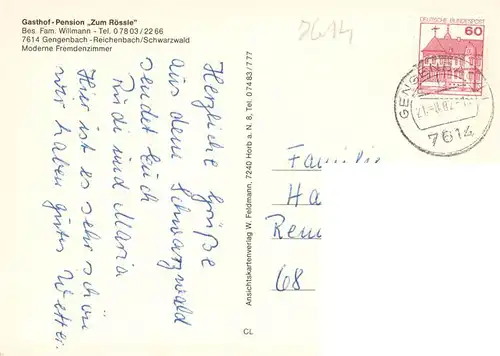 Gasthof-Pension „Zum Rössle"
Bes. Fam. Willmann - Tel. 0 78 03 / 22 66
7614 Gengenbach - Reichenbach/Schwarzwald
Moderne Fremdenzimmer
7614
DEUTSCHE BUNDESPOST
60
7614
Herzliche Grüße
aus dem Schwarzwald
sendet Euch
Rudi und Maria
Hier ist es sehr schön
wir haben gutes Wetter.
Ansichtskartenverlag W. Feldmann, 7240 Horb a. N. 8, Tel. 074 83 / 777
CL
Familie
Ha
Rem
68